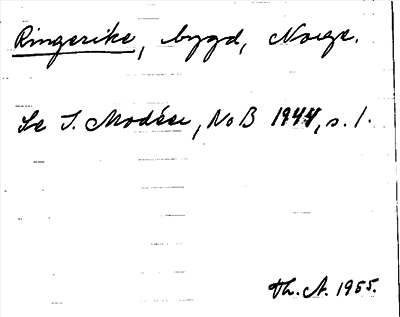 Ringerike, bygd, Norge.
Se I. Modéer, NoB 1944, s. 1.
Th. A. 1955.